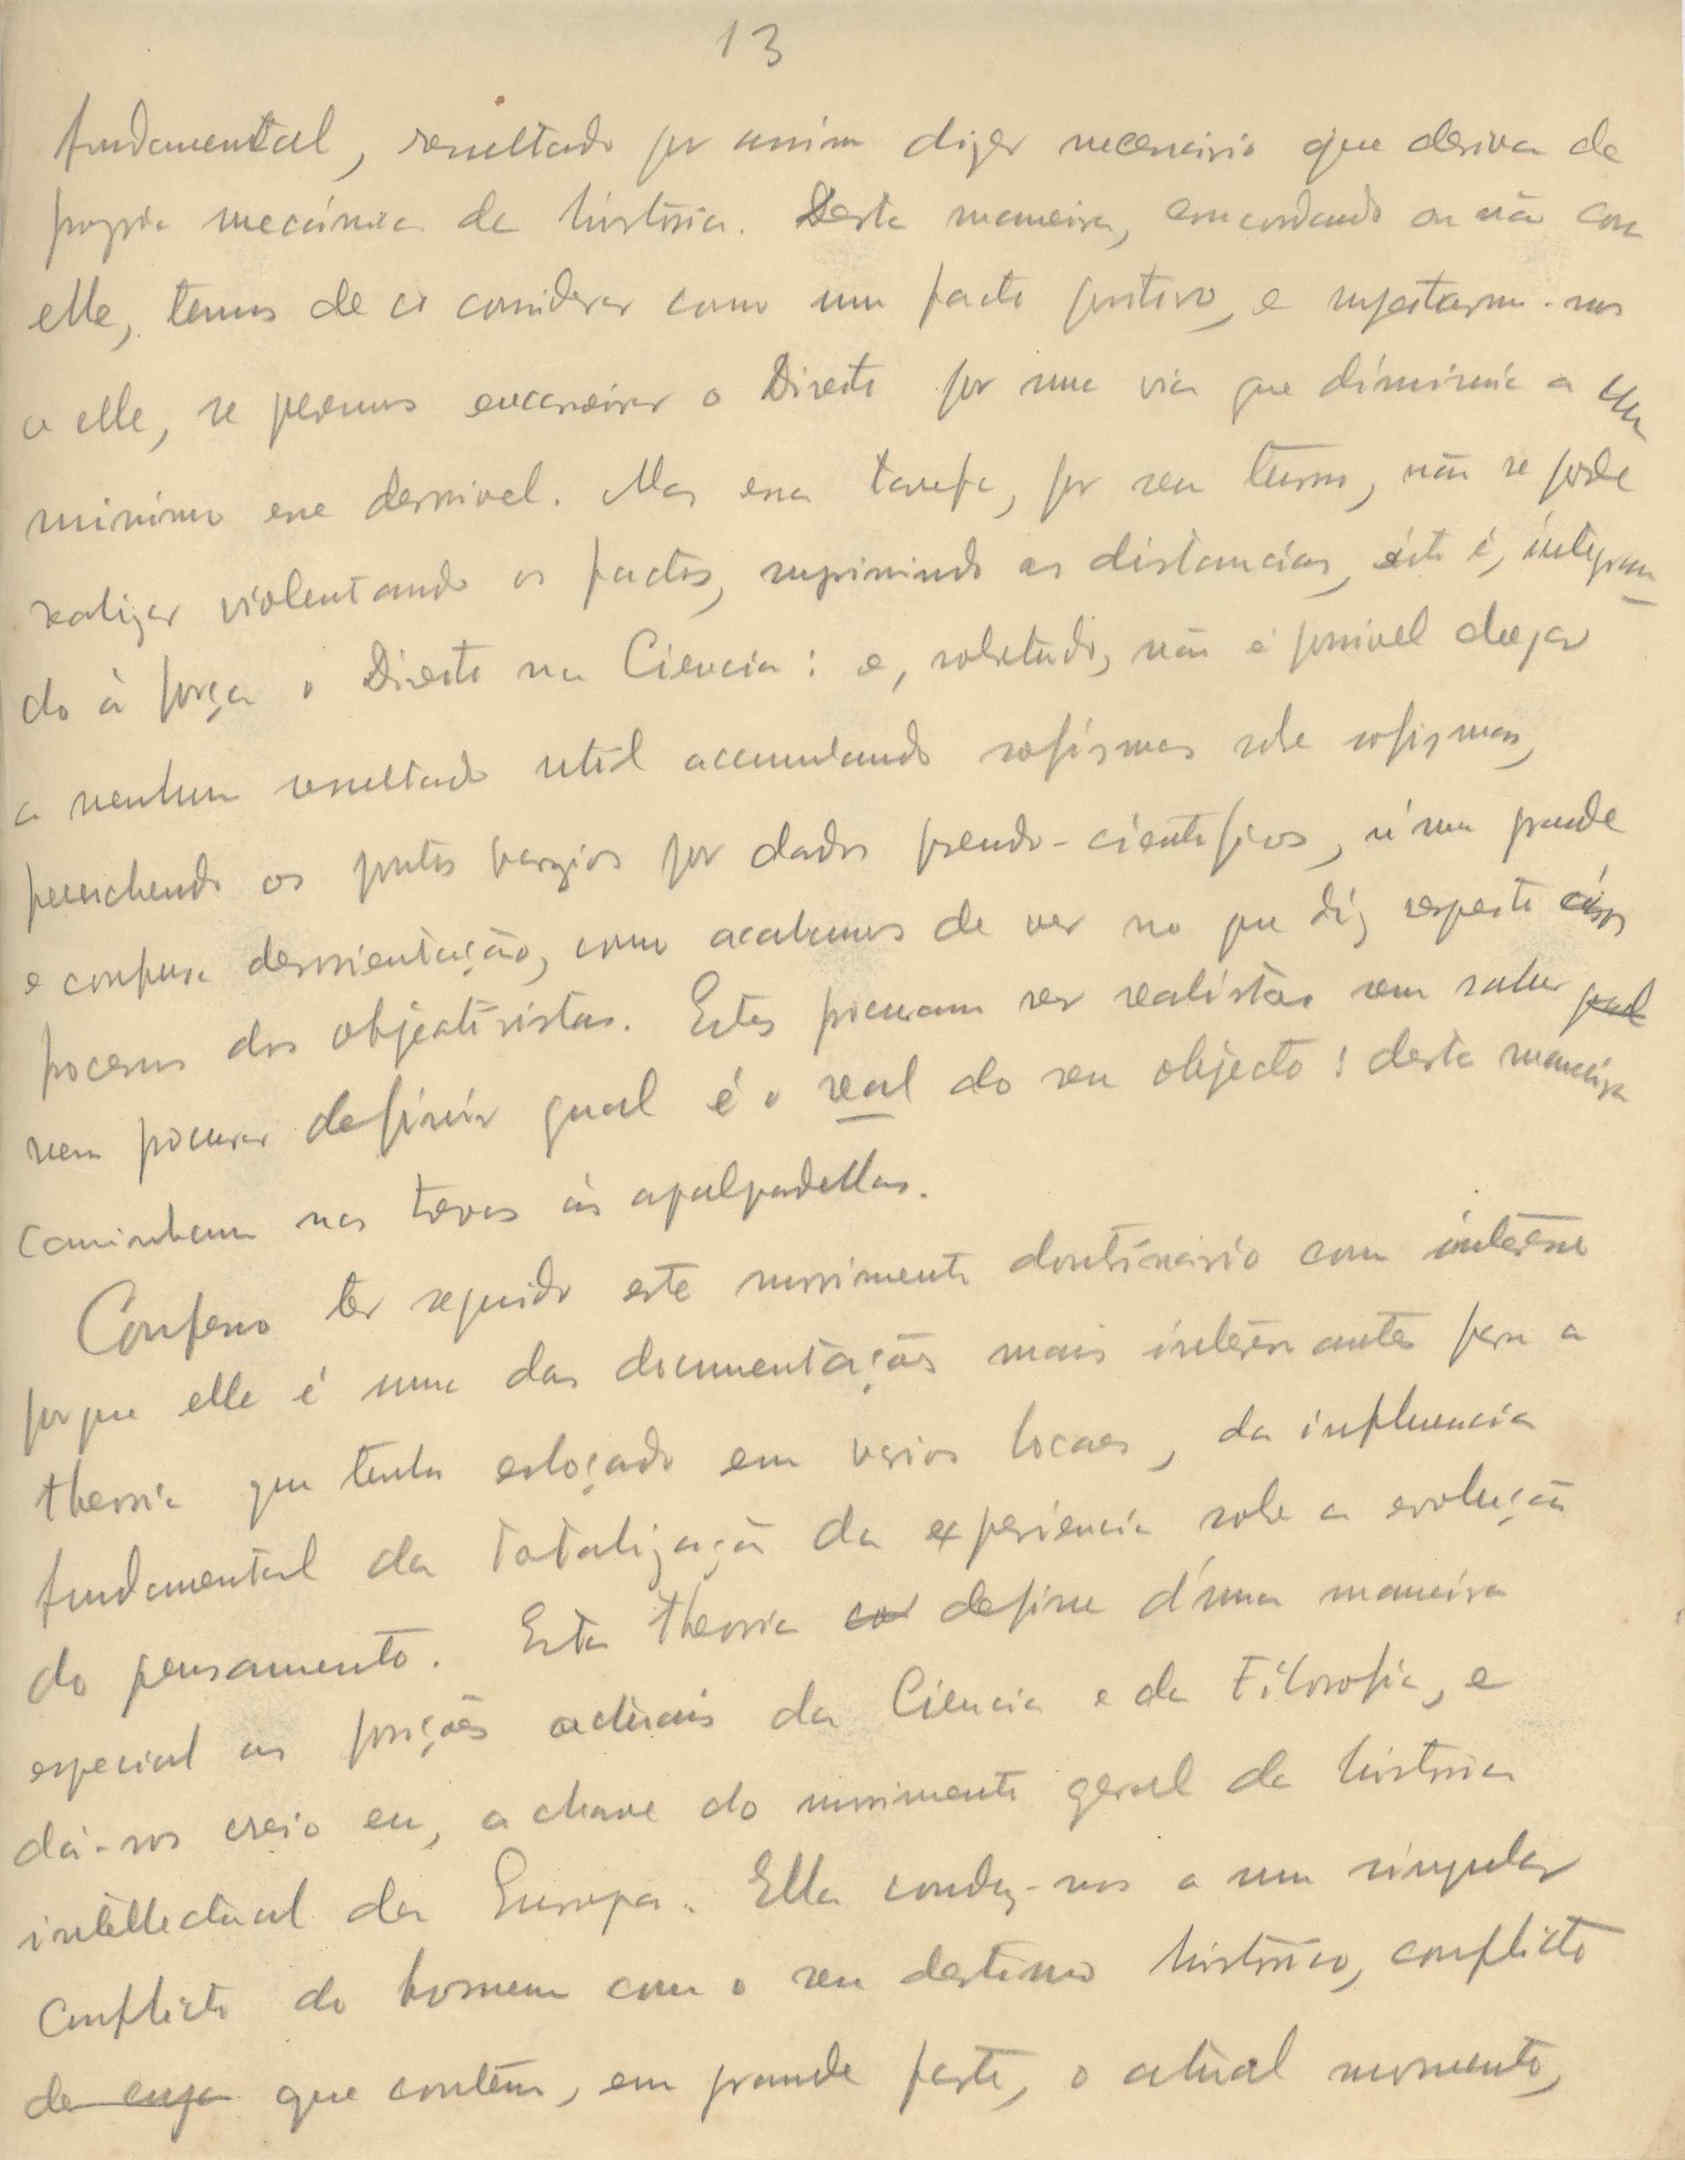 13
fundamental, resultado por assim dizer necessario que deriva da
propria mecánica da história. Desta maneira, concordando ou não com
elle, temos de o considerar como um facto positivo, e sujeitarmo-nos
a elle, se quermos encaminhar o Direito por uma via que diminuia a um
minimo esse desnivel. Mas essa tarefa, por seu turno, não se pode
realizar violentando os factos, suprimindo as distancias, isto é, integran_
do à força o Direito na Ciencia: e, sobretudo, não é possivel chegar
a nenhum resultado util accumulando sofismas sobre sofismas,
preenchendo os pontos vazios por dados pseudo-cientificos, n'uma grande
e confusa desorientação, como acabamos de ver no que diz respeito aos
processos dos objectivistas. Estes procuram ser realistas sem saber
nem procurar definir qual é o real do seu objecto: desta maneira
caminham nas trevas ás apalpadellas.
Confesso ter seguido este movimento doutrinario com interesse
porque elle é uma das documentações mais interessantes para a
theoria que tenho esboçado em varios locaes, da influencia
fundamental da totalização da experiencia sobre a evolução
do pensamento. Esta theoria define d'uma maneira
especial as posições actuais da Ciencia e da Filosofia, e
dá-nos creio eu, a chave do movimento geral da história
intellectual da Europa. Ella conduz-nos a um singular
conflicto do homem com o seu destino histórico, conflicto
de cuja que contém, em grande parte, o actual momento,